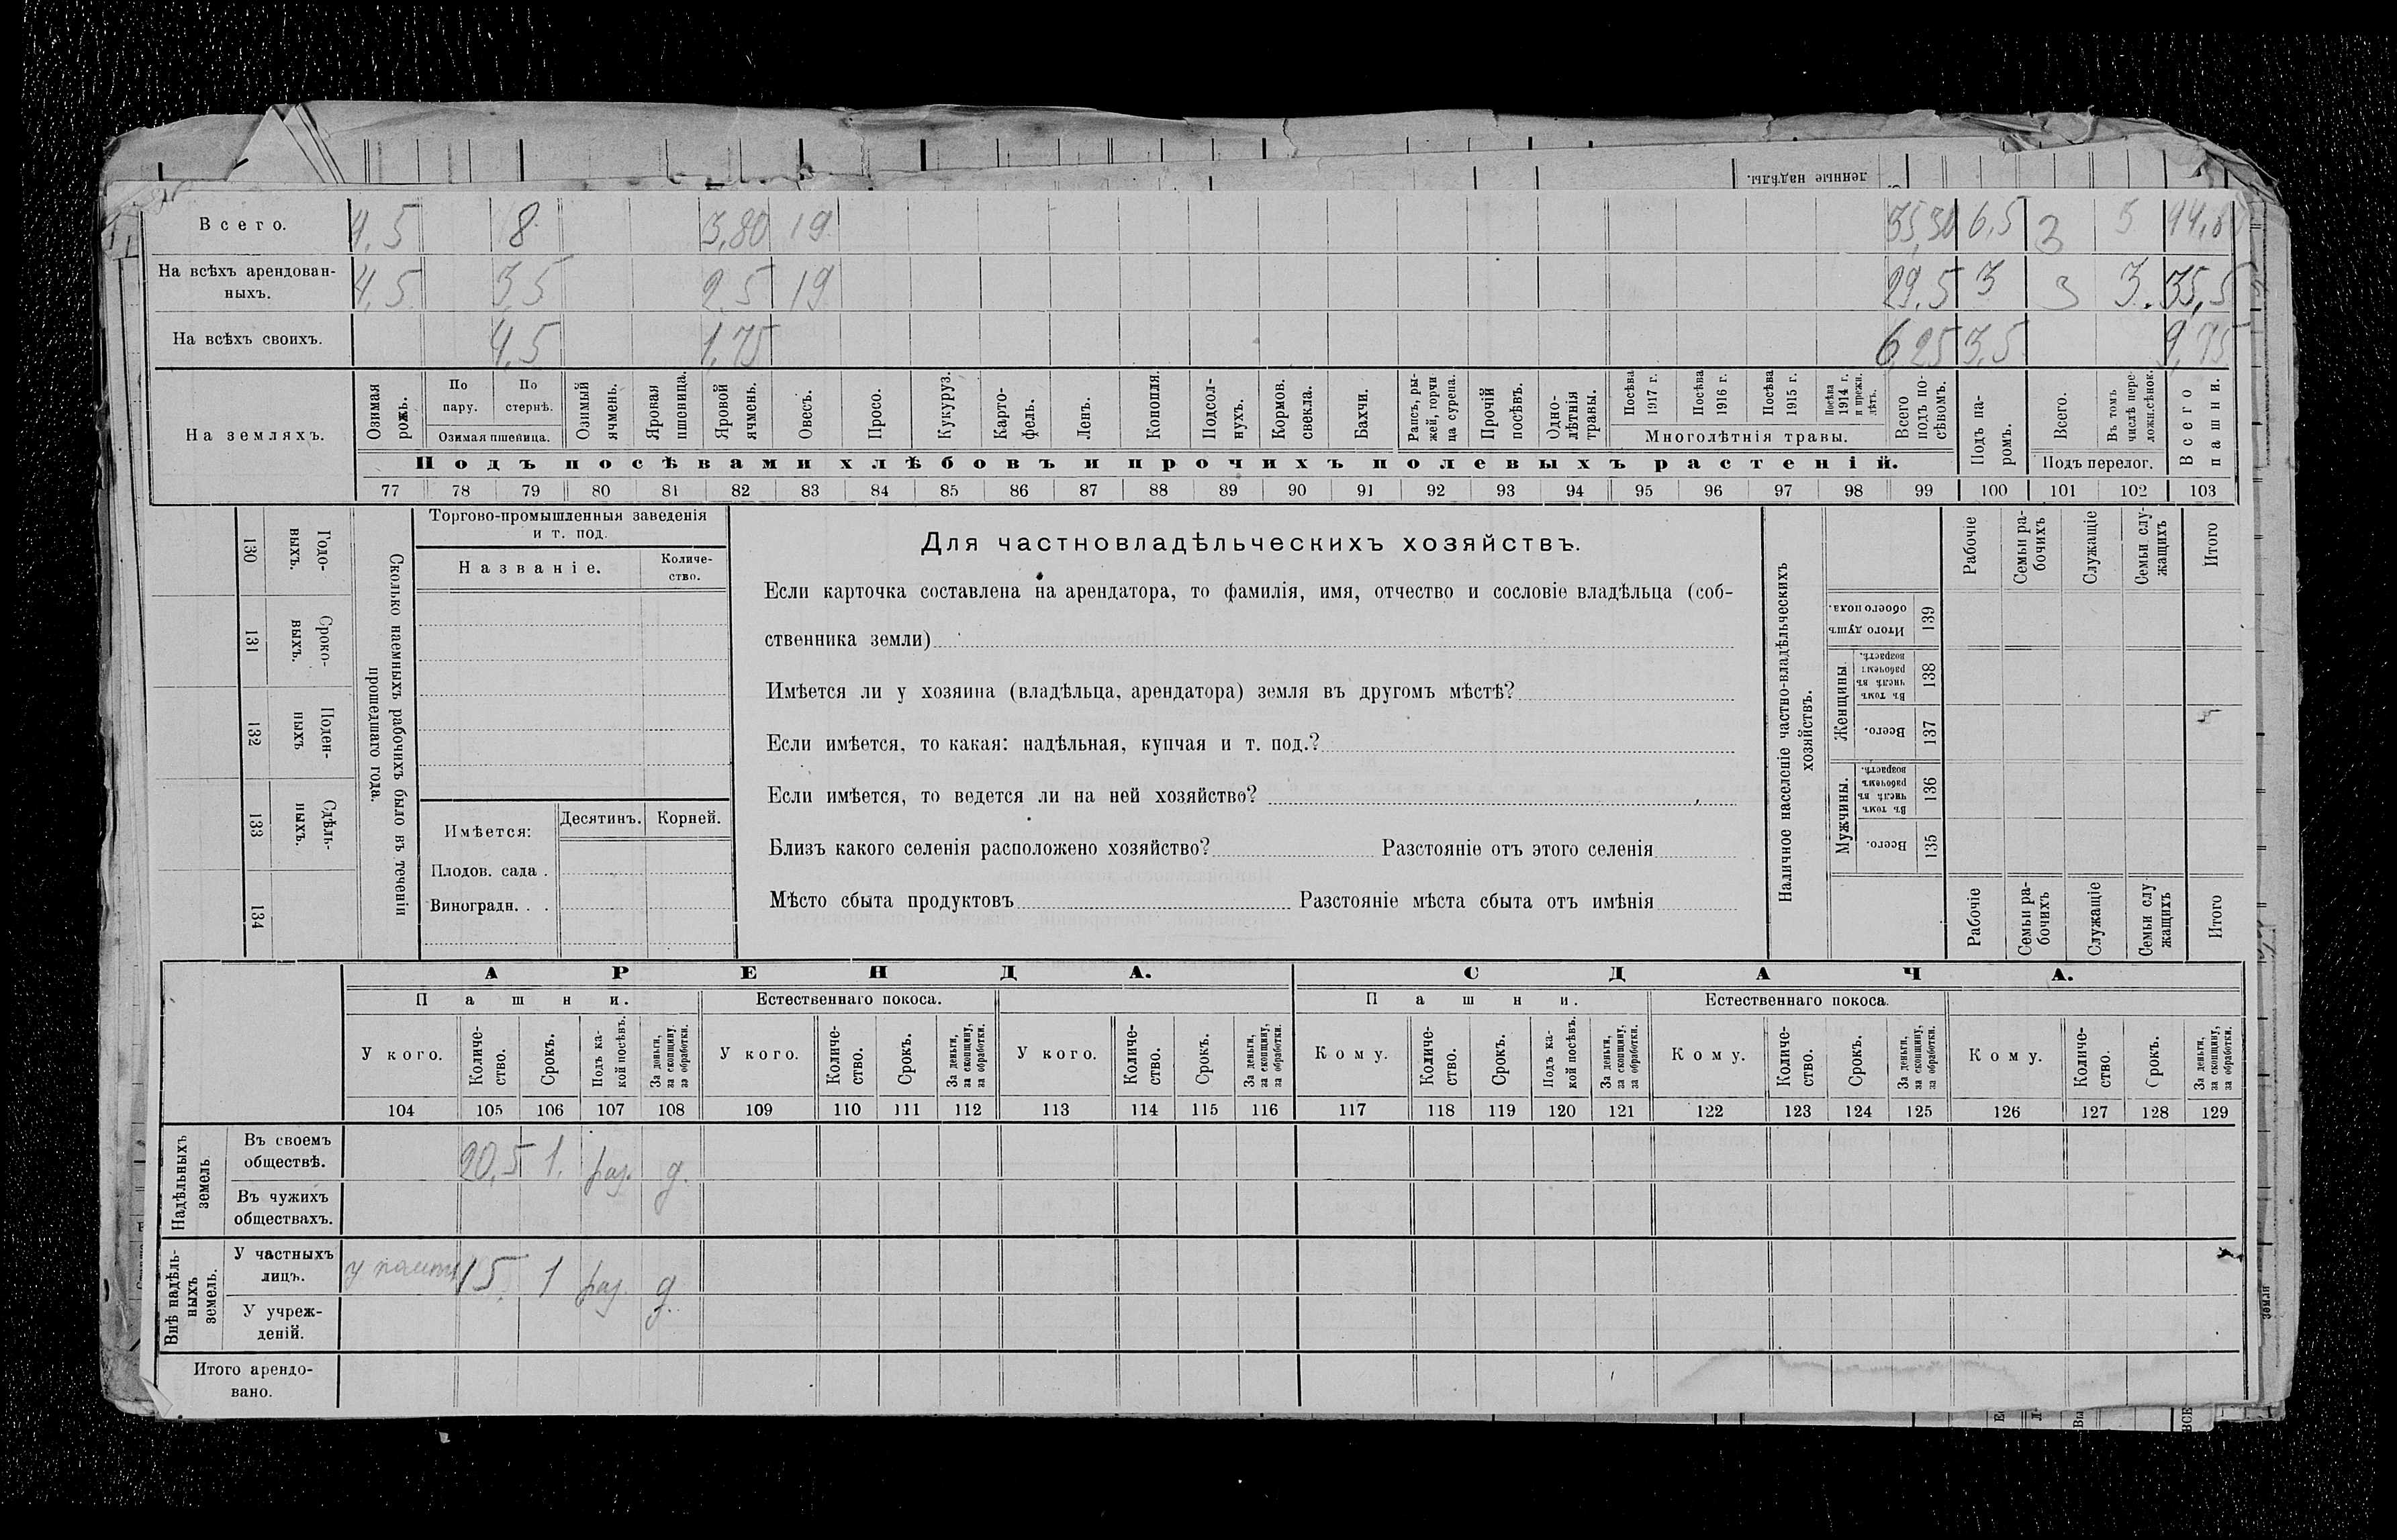 ленные надѣлы.
Всего. 4,5 8 3,80 19 35,30 6,5 3 3
На всѣхъ арендован-
ныхъ. 4,5 3,5 2,5 19 29,5 3 3 3. 35,5
На всѣхъ своихъ. 4,5 1,75 6,25 3,5 9,75
На земляхъ.
Озимая рожь.
По пару.
По стернѣ.
Озимая пшеница.
Озимый ячмень.
Яровая пшеница.
Яровой ячмень.
Овесъ.
Просо.
Кукуруз.
Карто-
фель.
Ленъ.
Конопля.
Подсол-
нухъ.
Кормов.
свекла.
Бахчи.
Рапсъ, ры-
жей, горчи
ца сурепа.
Прочій
посѣвъ.
Одно-
лѣтнія
травы.
Посѣва
1917 г.
Посѣва
1916 г.
Посѣва
1915 г.
Посѣва
1914 г.
и прежн.
лѣтъ.
Многолѣтнія травы.
Всего
подъ по-
сѣвомъ.
Подъ па-
ромъ.
Всего.
Въ томъ
числѣ пере
ложн.сѣнок.
Подъ перелог.
Всего
пашни.
Подъ посѣвами хлѣбовъ и прочихъ полевыхъ растеній.
77 78 79 80 81 82 83 84 85 86 87 88 89 90 91 92 93 94 95 96 97 98 99 100 101 102 103
130 Годо-
выхъ.
131 Сроко-
выхъ.
132 Поден-
ныхъ
133 Сдѣль-
ныхъ.
134
Сколько наемныхъ рабочихъ было въ теченіи
прошедшаго года.
Торгово-промышленныя заведенія
и т. под.
Названіе.
Количе-
ство.
Имѣется:
Десятинъ. Корней.
Плодов. сада .
Виноградн. . .
Для частновладѣльческихъ хозяйствъ.
Если карточка составлена на арендатора, то фамилія, имя, отчество и сословіе владѣльца (соб-
ственника земли)
Имѣется ли у хозяина (владѣльца, арендатора) земля въ другомъ мѣстѣ?
Если имѣется, то какая: надѣльная, купчая и т. под.?
Если имѣется, то ведется ли на ней хозяйство?
Близъ какого селенія расположено хозяйство? Разстояніе отъ этого селенія
Мѣсто сбыта продуктовъ Разстояніе мѣста сбыта отъ имѣнія
Наличное населеніе частно-владѣльческихъ
хозяйствъ.
Рабочіе
Семьи ра-
бочихъ
Служащіе
Семьи слу-
жащихъ
Итого
Итого душъ
обоего пола.
139
Женщины.
Въ томъ
числѣ въ
рабочемъ
возрастѣ.
138
Всего.
137
Мужчины.
Въ томъ
числѣ въ
рабочемъ
возрастѣ.
136
Всего.
135
Рабочіе
Семьи ра-
бочихъ
Служащіе
Семьи слу
жащихъ
Итого
АРЕНДА. СДАЧА.
Пашни. Естественнаго покоса. Пашни. Естественнаго покоса.
У кого.
Количе-
ство.
Срокъ.
Подъ ка-
кой посѣвъ.
За деньги,
за скопщину,
за обработки.
У кого.
Количе-
ство.
Срокъ.
За деньги,
за скопщину,
за обработки.
У кого.
Количе-
ство.
Срокъ.
За деньги,
за скопщину,
за обработки.
Кому.
Количе-
ство.
Срокъ.
Подъ ка-
кой посѣвъ.
За деньги,
за скопщину,
за обработки.
Кому.
Количе-
ство.
Срокъ.
За деньги,
за скопщину,
за обработки.
Кому.
Количе-
ство.
Срокъ.
За деньги,
за скопщину,
за обработки.
104 105 106 107 108 109 110 111 112 113 114 115 116 117 118 119 120 121 122 123 124 125 126 127 128 129
Надѣльныхъ
земель.
Въ своемъ
обществѣ. 20,5 1. раз. д.
Въ чужихъ
обществахъ.
Внѣ надѣль-
ныхъ
земель.
У частныхъ
лицъ. у 15 1 раз. д.
У учреж-
деній.
Итого арендо-
вано.
земли